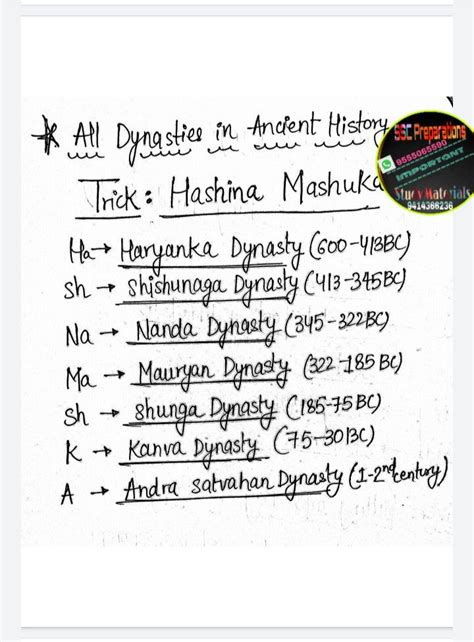 * All Dynasties in Ancient History
SSC Preparations
9555065590
IMPORTANT
Study Materials
9414366236
Trick : Hashina Mashuka
Ha → Haryanka Dynasty (600-413BC)
Sh → Shishunaga Dynasty (413-345BC)
Na → Nanda Dynasty (345-322BC)
Ma → Mauryan Dynasty (322-185 BC)
Sh → Shunga Dynasty (185-75 BC)
K → Kanva Dynasty (75-30BC)
A → Andra satvahan Dynasty (1-2nd century)